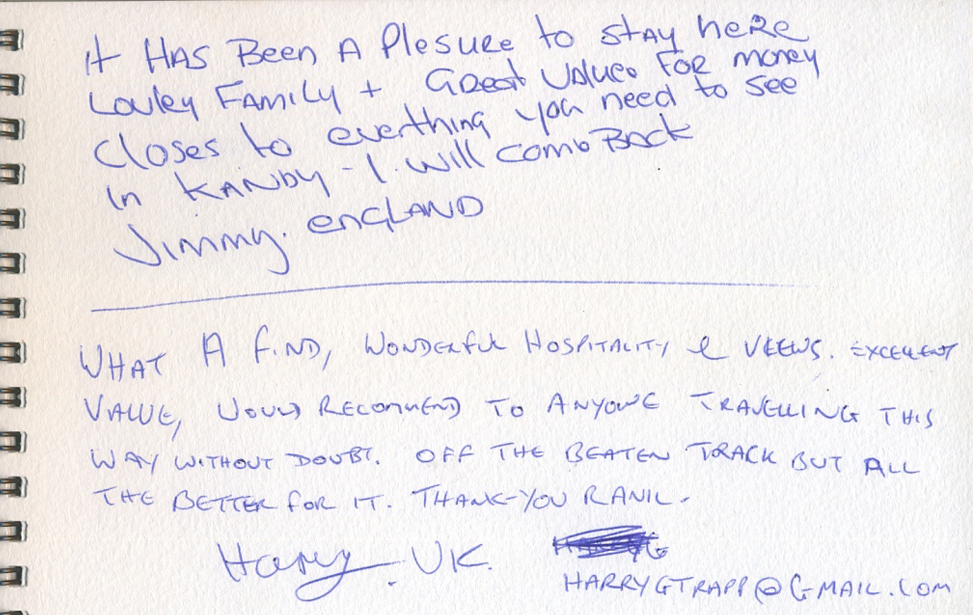 it HAS BeeN A PleSURe to stAy heRe
Lovley FAMiLy + GReat VAlue FOR money
Closes to everthing you need to see
in KANDY - I will come BACk
Jimmy. enGLAND
WHAT A FIND, WONDERFUL HOSPITALITY & VIEWS. EXCELLENT
VALUE, WOULD RECOMMEND TO ANYONE TRAVELLING THIS
WAY WITHOUT DOUBT. OFF THE BEATEN TRACK BUT ALL
THE BETTER FOR IT. THANK-YOU RANIL.
Harry. UK.
HARRYGTRAPP@GMAIL.COM